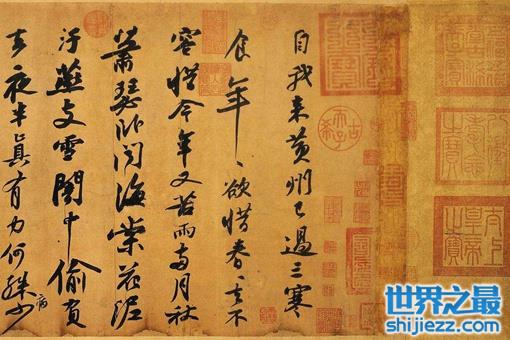 自我來黃州已過三寒
食年〻欲惜春〻去不
容惜今年又苦雨兩月秋
蕭瑟臥聞海棠花泥
汙燕支雪闇中偷負
去夜半真有力何殊少
病
古希天子
世界之最
shijiezz.com